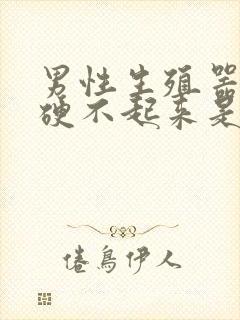 男性生殖器
硬不起来是
倦鸟伊人